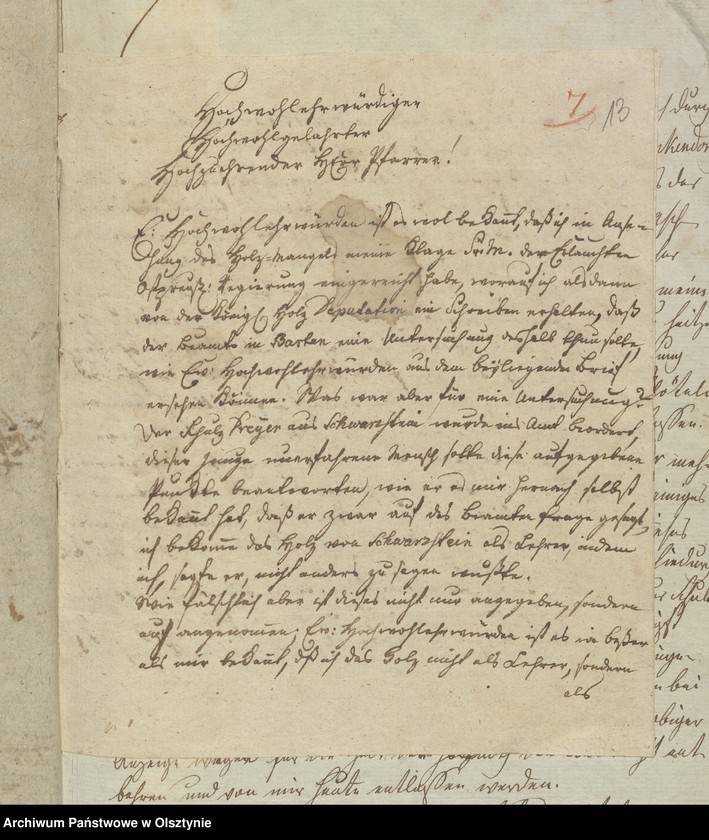 Hochwohlehrwürdiger
Hochwohlgelahrter
Hochzuehrender Herr Pfarrer!
7 13
E: Hochwohlehrwürden ist es wol bekant, daß ich in Anse-
hung des Holz-Mangels meine Klage der Erlauchten
Ostpreuß: Regierung eingereicht habe, worauf ich alsdann
von der Königl Holz Deputation ein Schreiben erhalten, daß
der Beamte in Barten eine Untersuchung deshalb thun solte,
wie Ew: Hochwohlehrwürden aus dem beyliegenden Brief
ersehen können. Was war aber für eine Untersuchung?
Der Schulz Preyer aus Schwarzstein wurde ins Amt beordert,
dieser junge unerfahrene Mensch solte diese aufgegebene
Punckte beantworten, wie er es mir hernach selbst
bekant hat, daß er zwar auf des Beamten Frage gesagt,
ich bekomme das Holz von Schwarzstein als Lehrer, indem
ich, sagte er, nicht anders zu sagen wußte.
Wie fälschlich aber ist dieses nicht nur angegeben, sondern
auch angenommen; Ew: Hochwohlehrwürden ist es ia beßer
als mir bekant, dß ich das Holz nicht als Lehrer, sondern
als
behren und von mir heute entlassen werden.
Archiwum Państwowe w Olsztynie